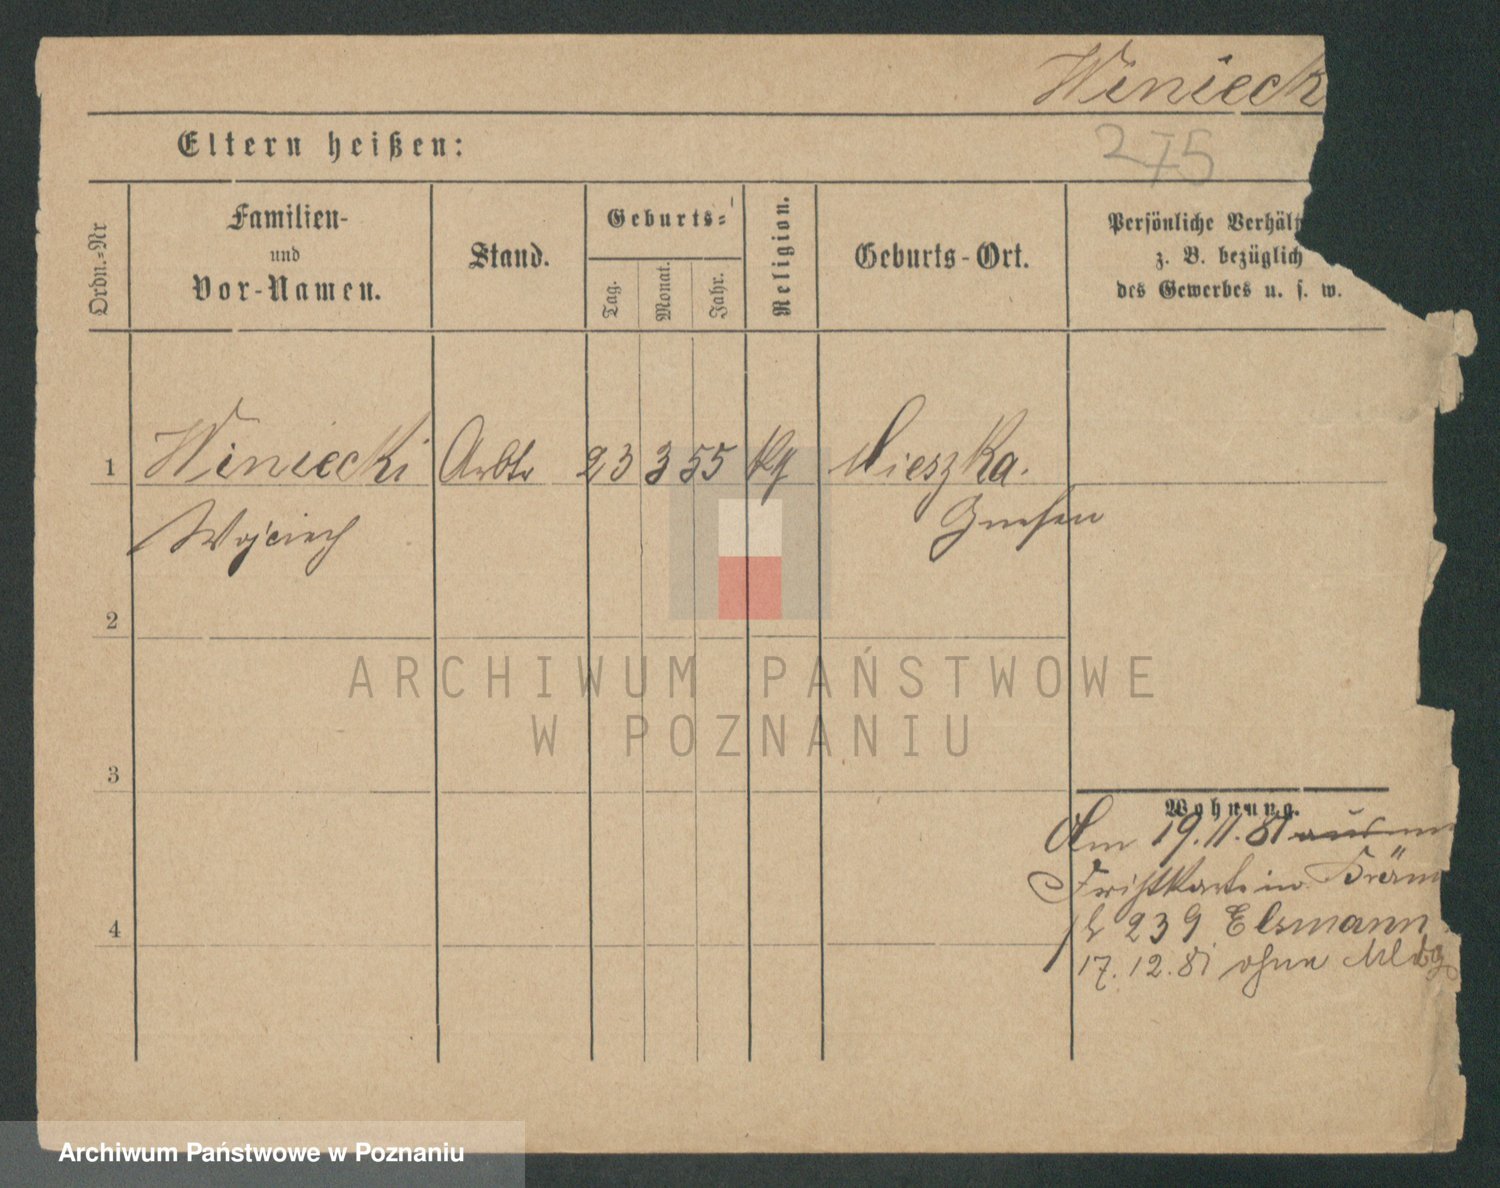 Winieck
275
Eltern heißen:
Ordn.-Nr
Familien-
und
Vor-Namen.
Stand.
Geburts-
Tag.
Monat.
Jahr.
Religion.
Geburts-Ort.
Persönliche Verhält
z. B. bezüglich
des Gewerbes u. s. w.
1 Winiecki Arbtr 23 3 55 Kg Mieszka.
Wojciech Gnesen
2
3
4
Wohnung.
Am 19.11.81 aus
in
239 Elsmann
17.12.81 ohne Mldg
ARCHIWUM PAŃSTWOWE
W POZNANIU
Archiwum Państwowe w Poznaniu